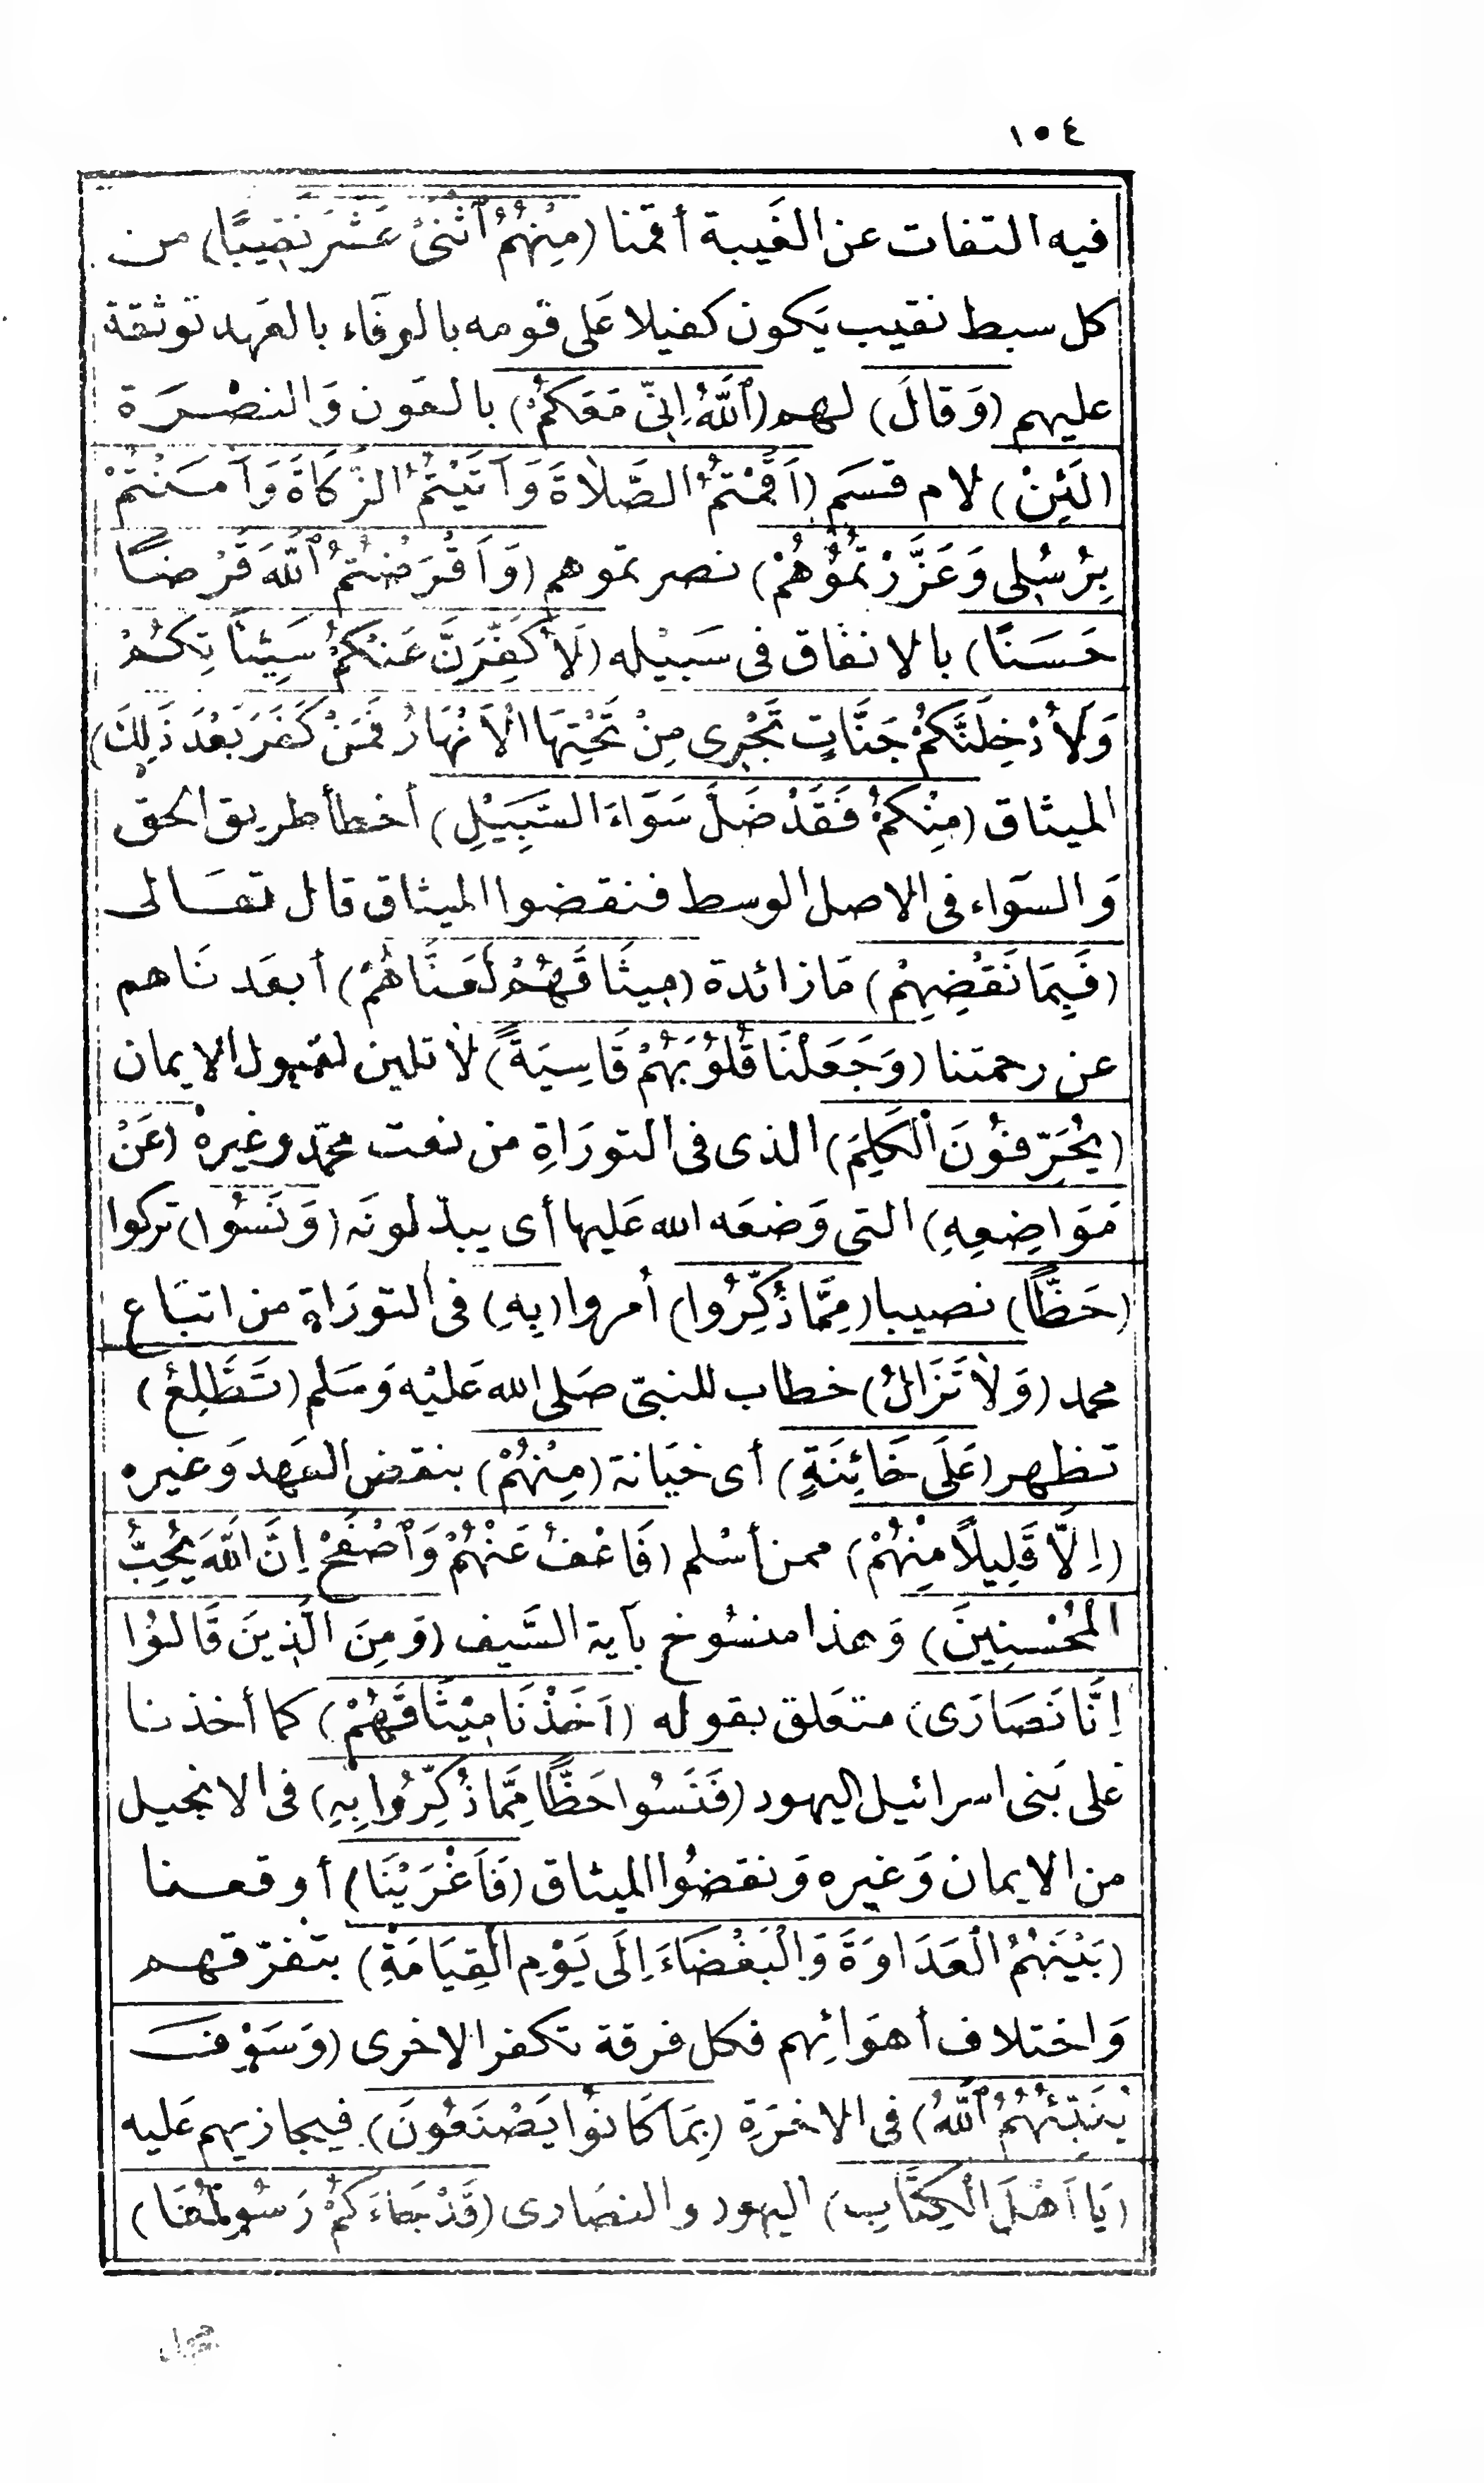 ١٥٤
فيه التفات عن الغَيبة أقمنا (مِنْهُمُ ٱثْنَىْ عَشَرَ نَقِيبًا) من
كل سبط نقيب يَكون كفيلا عَلى قومه بالوفَاء بالعَهد توثقة
عليهم (وَقَالَ) لهم (ٱللَّهُ اِنِّى مَعَكُمْ) بالعَون وَالنصْرَة
(لَئِنْ) لام قسَم (اَقَمْتُمُ الصَّلاٰةَ وَآتَيْتُمُ الزَّكَاةَ وَآمَنْتُمْ
بِرُسُلِى وَعَزَّرْتُمُوُهُمْ) نصرتموهم (وَاَقْرَضْتُمُ ٱللَّهَ قَرْضًا
حَسَنًا) بالانفاق فى سَبيْله (لَأُكَفِّرَنَّ عَنْكُمْ سَيِّئَاتِكُمْ
وَلَأُدْخِلَنَّكُمْ جَنَّاتٍ تَجْرِى مِنْ تَحْتِهَا الْاَنْهَارُ فَمَنْ كَفَرَ بَعْدَ ذَلِكَ)
الميثاق (مِنْكُمْ فَقَدْ ضَلَّ سَوَآءَ السَّبِيْلِ) أخطأ طريق الحق
وَالسوَاء فى الاصل الوسط فنقضوا الميثاق قال تعَالى
(فَبِمَا نَقْضِهِمْ) مَا زائدة (مِيثَاقَهُمْ لَعَنَّاهُمْ) أبعَدنَاهم
عن رحمتنا (وَجَعَلْنَا قُلُوْبَهُمْ قَاسِيَةً) لا تلين لقبول الايمان
(يُحَرِّفُوْنَ الْكَلِمَ) الذى فى التورَاةِ من نعت محمّد وغيره (عَنْ
مَوَاضِعِهِ) التى وَضعَه الله عَليها أى يبدّلونَه (وَنَسُوا) تركوا
(حَظًّا) نصيبا (مِمَّا ذُكِّرُوا) أُمروا (بِهِ) فى التورَاة من اتبَاع
محمد (وَلاٰ تَزَالُ) خطاب للنبىّ صَلى الله عَليْه وَسَلم (تَطَّلِعُ)
تظهر (عَلَى خَائِنَةٍ) أى خيَانة (مِنْهُمْ) بنقض العَهد وَغيره
(اِلَّا قَلِيلًا مِنْهُمْ) ممن أسْلم (فَاعْفُ عَنْهُمْ وَٱصْفَحْ اِنَّ اللَّهَ يُحِبُّ
الْمُحْسِنِينَ) وَهذا منسُوخ بآية السَّيف (وَمِنَ الَّذِينَ قَالُوْا
اِنَّا نَصَارَى) متعَلق بقوله (اَخَذْنَا مِيْثَاقَهُمْ) كما أخذنا
عَلى بَنى اسرائيل اليهود (فَنَسُوا حَظًّا مِمَّا ذُكِّرُوا بِهِ) فى الانجيل
من الايمان وَغيره وَنقضُوا الميثاق (فَاَغْرَيْنَا) أوقعنا
(بَيْنَهُمُ الْعَدَاوَةَ وَالْبَغْضَاءَ اِلَى يَوْمِ الْقِيَامَةِ) بتفرّقهم
وَاختلاف أهوَائهم فكل فرقة تكفر الاخرى (وَسَوْفَ
يُنَبِّئُهُمُ ٱللَّهُ) فى الاخرَةِ (بِمَا كَانُوا يَصْنَعُونَ) فيجازيهم عَليه
(يَا اَهْلَ الْكِتَابِ) اليهود والنصَارى (قَدْ جَاءَكُمْ رَسُولُنَا)